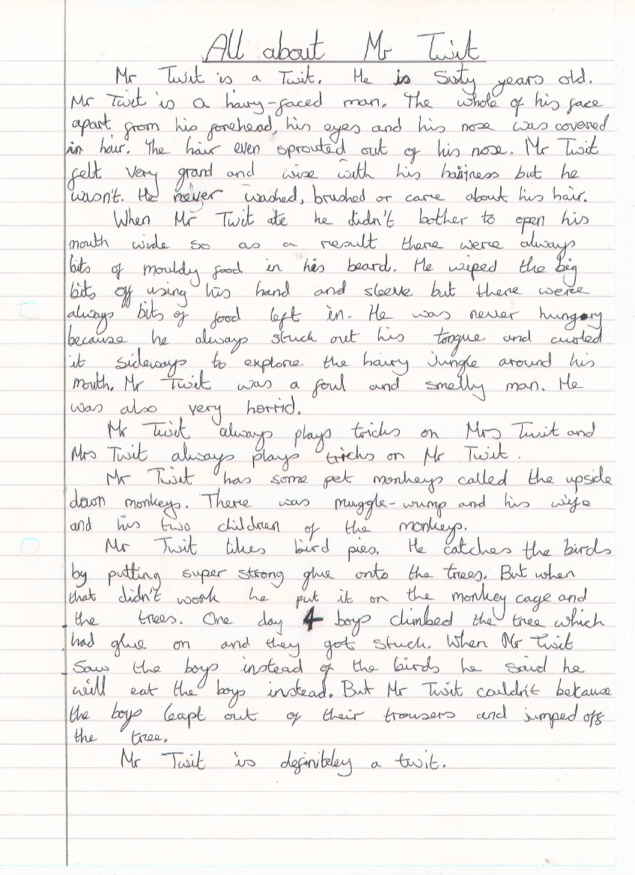 All about Mr Twit
Mr Twit is a Twit. He is Sixty years old.
Mr Twit is a hairy-faced man. The whole of his face
apart from his forehead, his eyes and his nose was covered
in hair. The hair even sprouted out of his nose. Mr Twit
felt very grand and wise with his hairiness but he
wasn't. He never washed, brushed or care about his hair.
When Mr Twit ate he didn't bother to open his
mouth wide so as a result there were always
bits of mouldy food in his beard. He wiped the big
bits off using his hand and sleeve but there were
always bits of food left in. He was never hungory
because he always stuck out his tongue and curled
it sideways to explore the hairy jungle around his
mouth. Mr Twit was a foul and smelly man. He
was also very horrid.
Mr Twit always plays tricks on Mrs Twit and
Mrs Twit always plays tricks on Mr Twit.
Mr Twit has some pet monkeys called the upside
down monkeys. There was muggle-wump and his wife
and his two children of the monkeys.
Mr Twit likes bird pies. He catches the birds
by putting super strong glue onto the trees. But when
that didn't work he put it on the monkey cage and
the trees. One day 4 boys climbed the tree which
had glue on and they got stuck. When Mr Twit
saw the boys instead of the birds he said he
will eat the boys instead. But Mr Twit couldn't bekause
the boys leapt out of their trousers and jumped off
the tree.
Mr Twit is definiteley a twit.